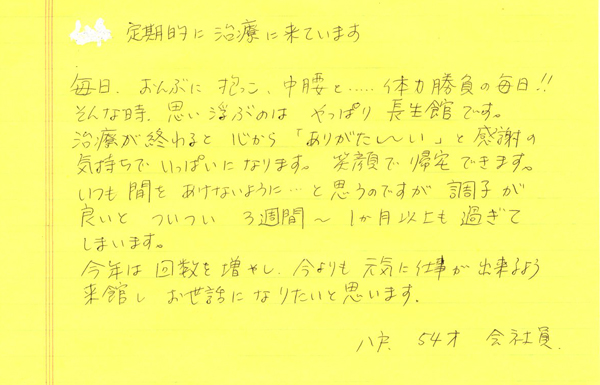 定期的に治療に来ています
毎日、おんぶに抱っこ、中腰と‥‥‥体力勝負の毎日!!
そんな時、思い浮ぶのは やっぱり 長生館です。
治療が終わると 心から「ありがた〜い」と感謝の
気持ちで いっぱいになります。 笑顔で 帰宅できます。
いつも間を あけないように…と思うのですが 調子が
良いと ついつい 3週間〜1か月以上も 過ぎて
しまいます。
今年は 回数を増やし、今よりも 元気に仕事が出来るよう
来館し お世話になりたいと思います。
八戸 54才 会社員